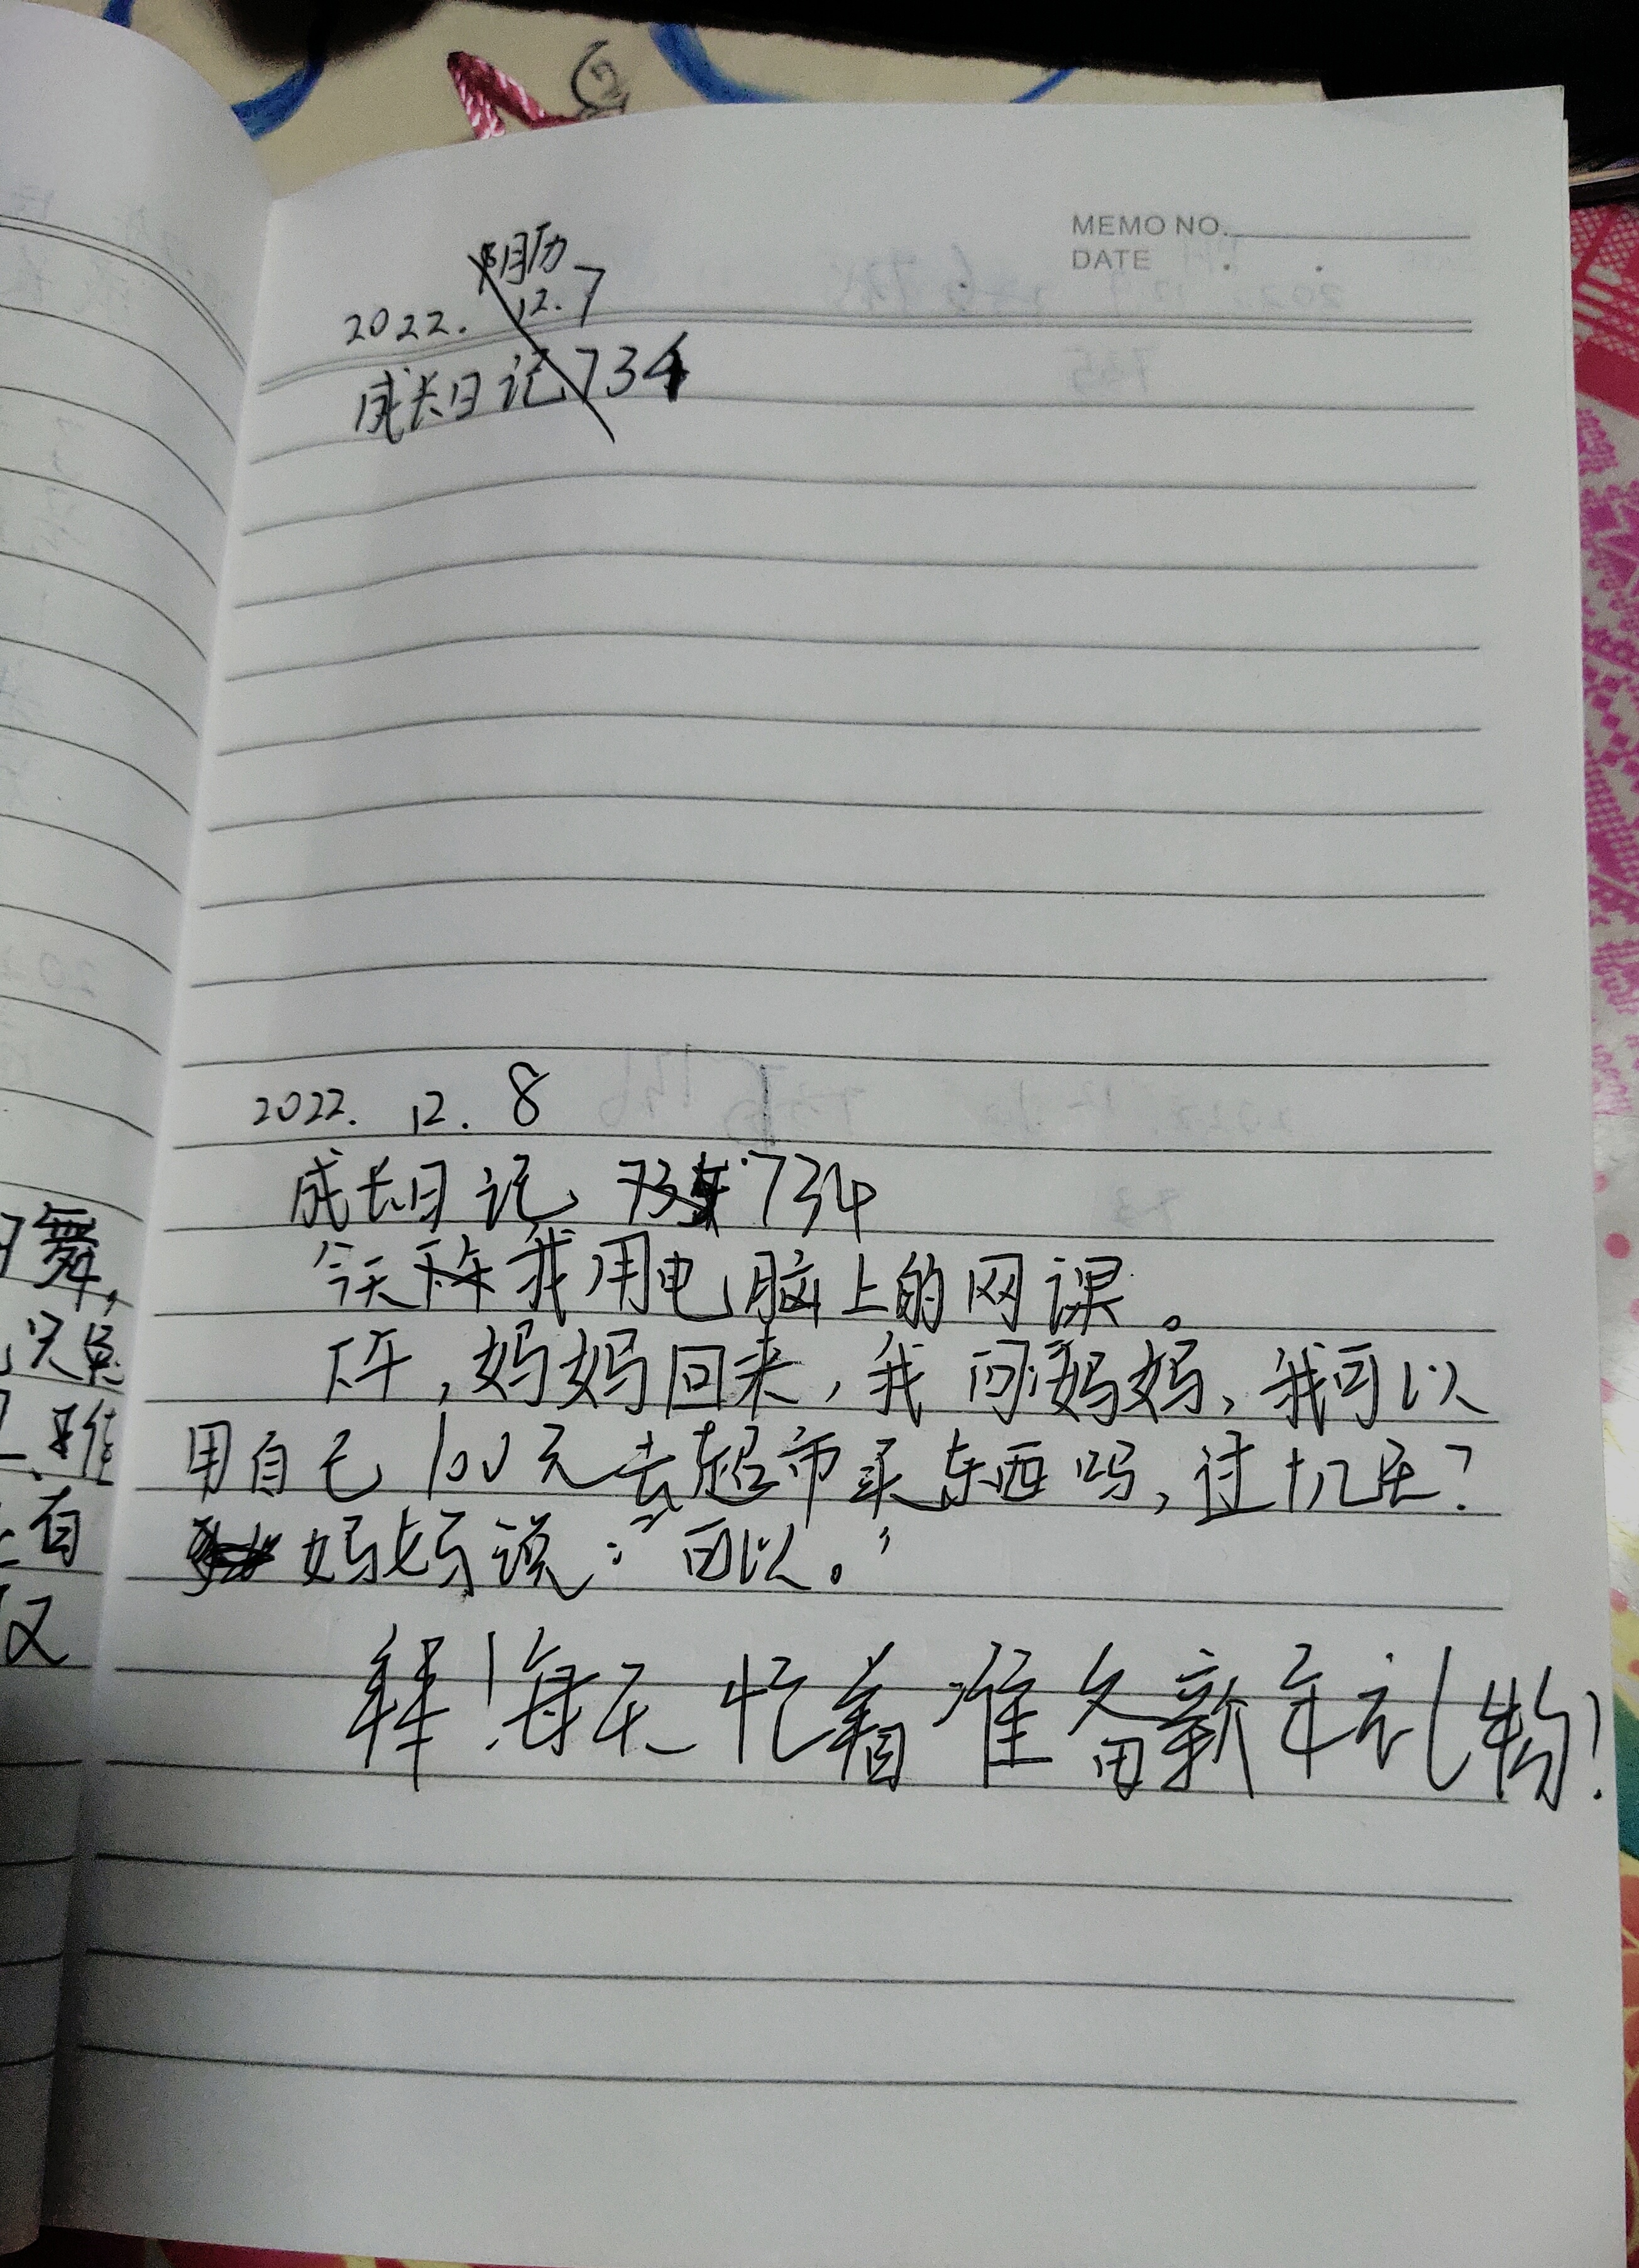 MEMO NO.
DATE
阴历
2022. 12.7
成长日记734
2022. 12. 8
成长日记 734
今天我用电脑上的网课。
下午,妈妈回来,我问妈妈,我可以
用自己100元去超市买东西吗,过十几天?
妈妈说:“可以。”
每天忙着准备新年礼物!
舞,
又